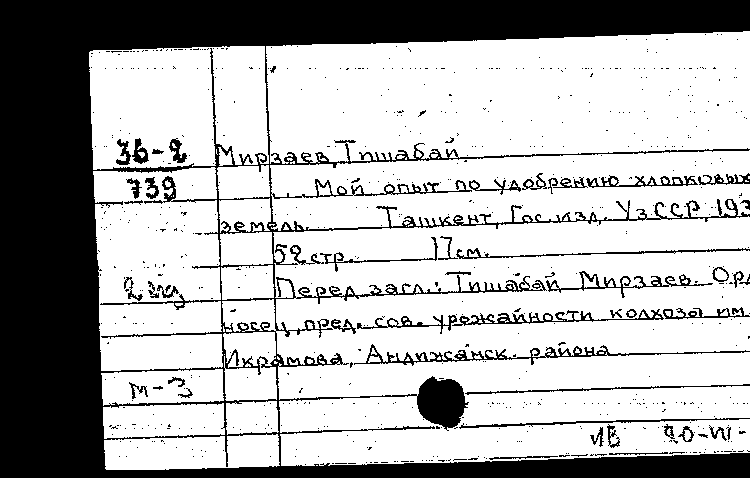 36-2 Мирзаев, Тишабай.
739 ... Мой опыт по удобрению хлопковых
земель. Ташкент, Гос. изд. УзССР, 193
52 стр. 17 см.
2 экз Перед загл.: Тишабай Мирзаев. Орд
носец, пред. сов. урожайности колхоза им.
Икрамова, Андижанск. района
м-3
20-VII-